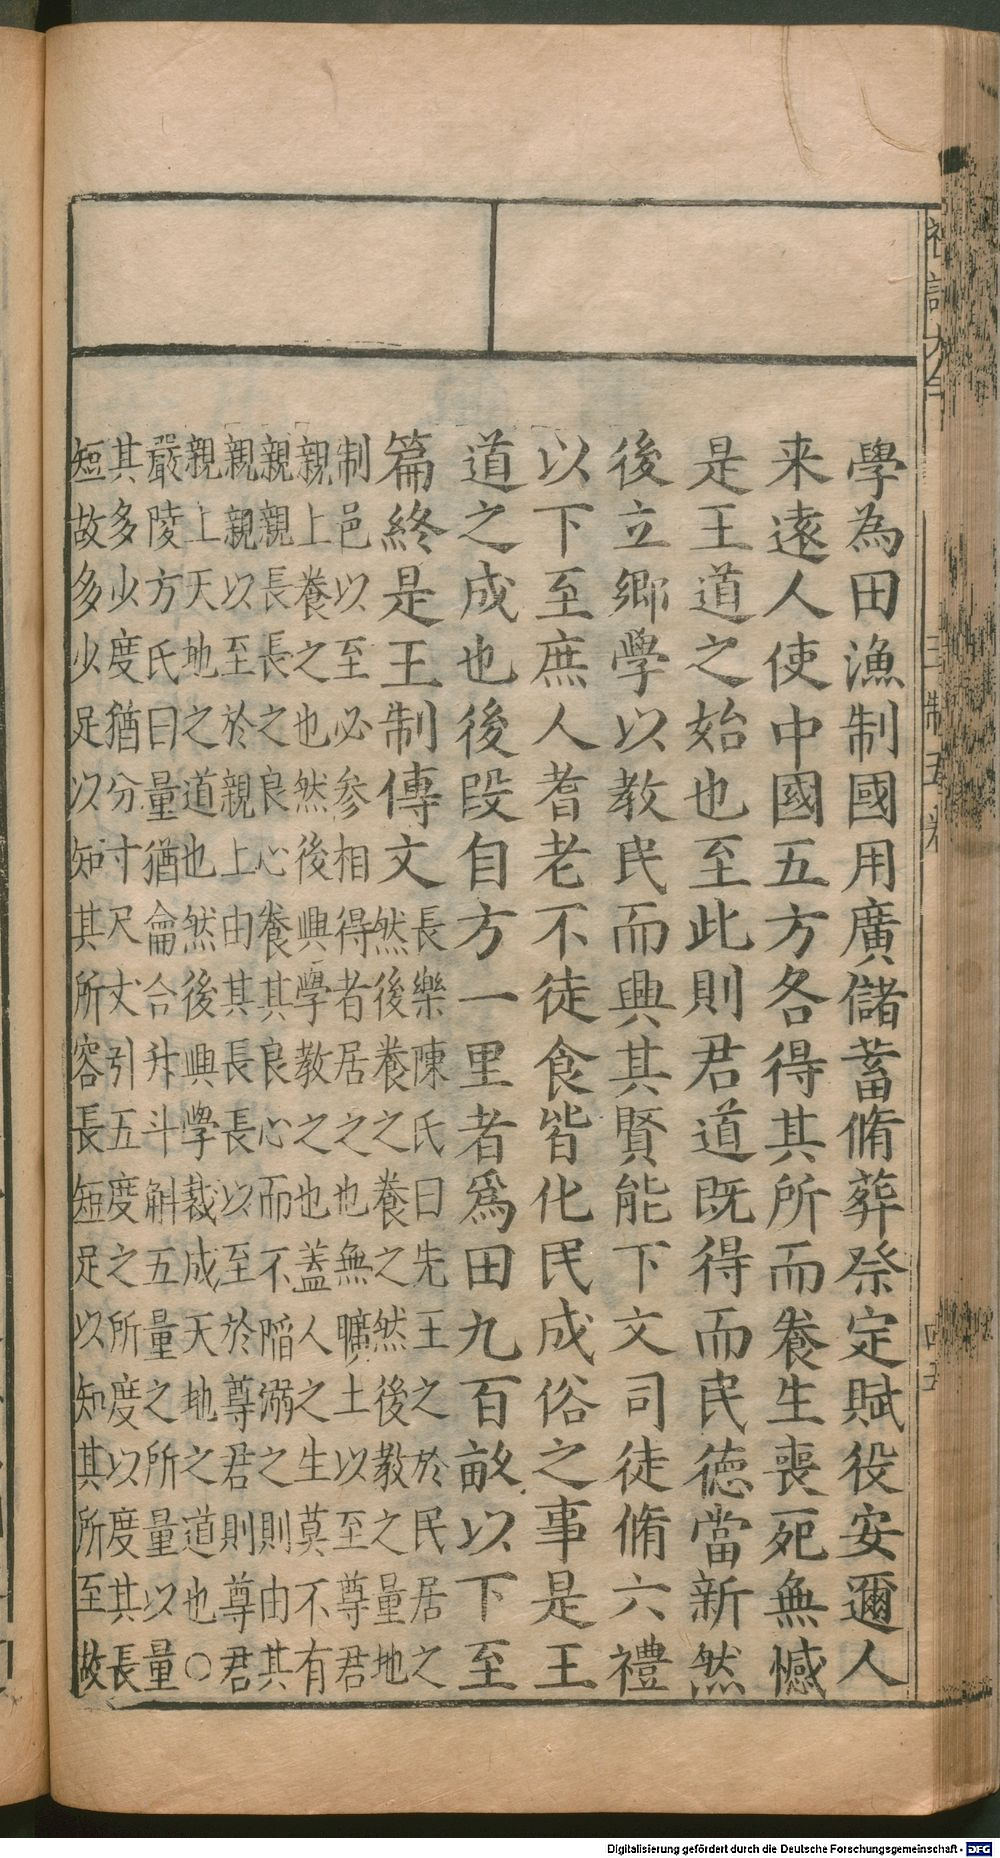 學為田漁制國用廣儲蓄脩葬祭定賦役安邇人
来遠人使中國五方各得其所而養生喪死無憾
是王道之始也至此則君道既得而民德當新然
後立鄉學以教民而興其賢能下文司徒脩六禮
以下至庶人耆老不徒食皆化民成俗之事是王
道之成也後段自方一里者爲田九百畝以下至
篇終是王制傳文
長樂陳氏曰先王之於民居之
然後養之養之然後教之量地
制邑以至必参相得者居之也無曠土以至尊君
親上養之也然後興學教之也蓋人之生莫不有
親親長長之良心養其良心而不陷溺之則由其
親親以至於親上由其長長以至於尊君則尊君
親上天地之道也然後興學裁成天地之道也○
嚴陵方氏曰量猶龠合升斗斛五量之所量以量
其多少度猶分寸尺丈引五度之所度以度其長
短故多少足以知其所容長短足以知其所至故
Digitalisierung gefördert durch die Deutsche Forschungsgemeinschaft - DFG